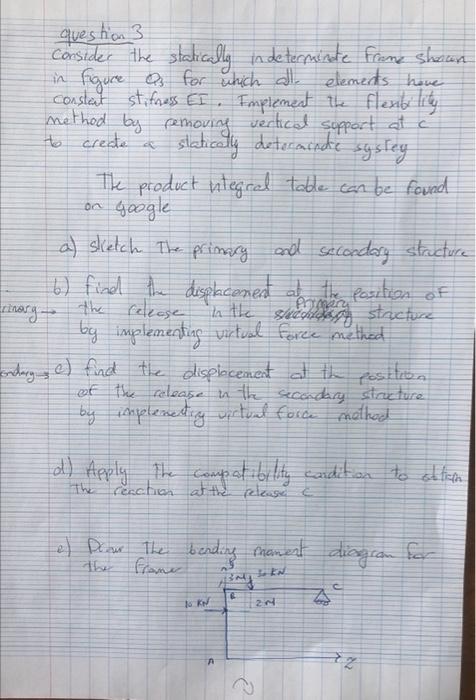 question 3
Consider the statically indeterminate frame shown
in figure Q3 for which all elements have
constant stifness EI. Implement the flexibility
method by removing vertical support at c
to create a statically determinate
The product integral table can be found
on google
a) sketch The primary and secondary structure
b) find the displacement at the position of
the release in the Primary structure
by implementing virtual force method
c) find the displacement at the position
of the release in the secondary structure
by implementing virtual force method
d) Apply The compatibility condition to obtain
The reaction at the release C
e) Draw The bending moment diagram for
the frame
3m 30 KN
C
10 KN B 2m
A Z